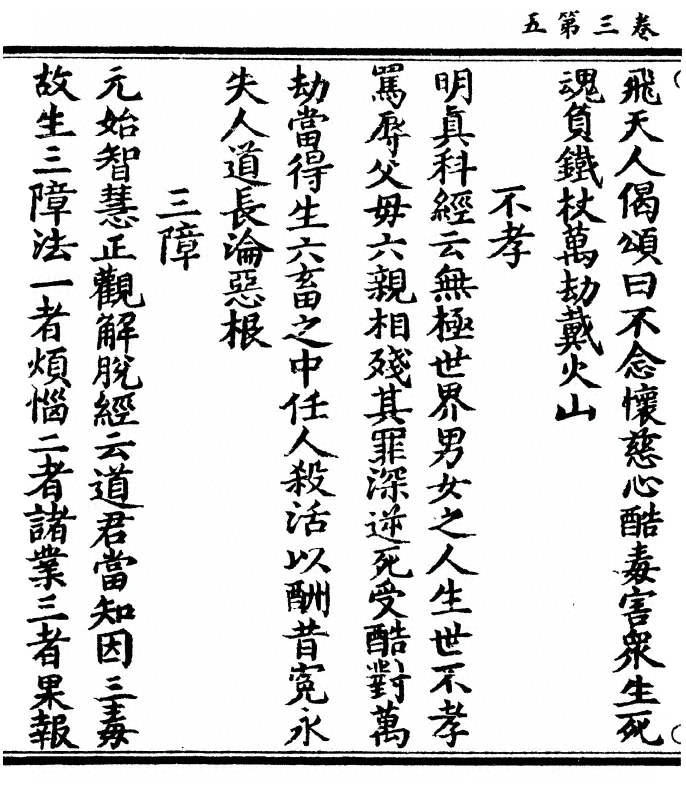 卷三第五
飛天人偈頌曰不念懷慈心酷毒害衆生死
魂負鐵杖萬劫戴火山
不孝
明真科經云無極世界男女之人生世不孝
罵辱父母六親相殘其罪深逆死受酷對萬
劫當得生六畜之中任人殺活以酬昔寃永
失人道長淪惡根
三障
元始智慧正觀解脫經云道君當知因三毒
故生三障法一者煩惱二者諸業三者果報